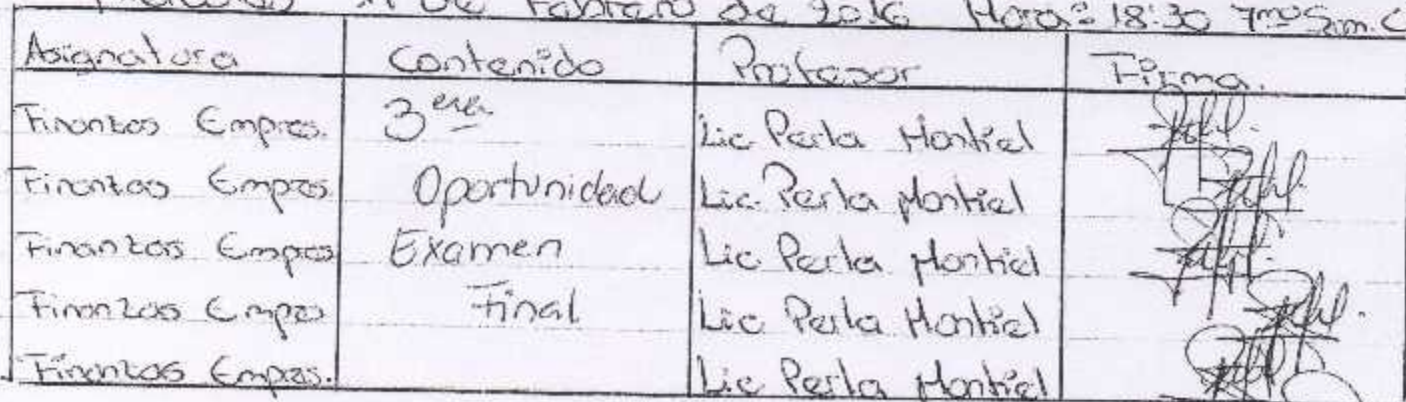 de Febrero de 2016 Hora: 18:30 7mo Sem. C
Asignatura Contenido Profesor Firma.
Finanzas Empres. 3era Lic Perla Montiel
Finanzas Empres. Oportunidad Lic. Perla Montiel
Finanzas Empres Examen Lic Perla Montiel
Finanzas Empres Final Lic Perla Montiel
Finanzas Empres. Lic Perla Montiel